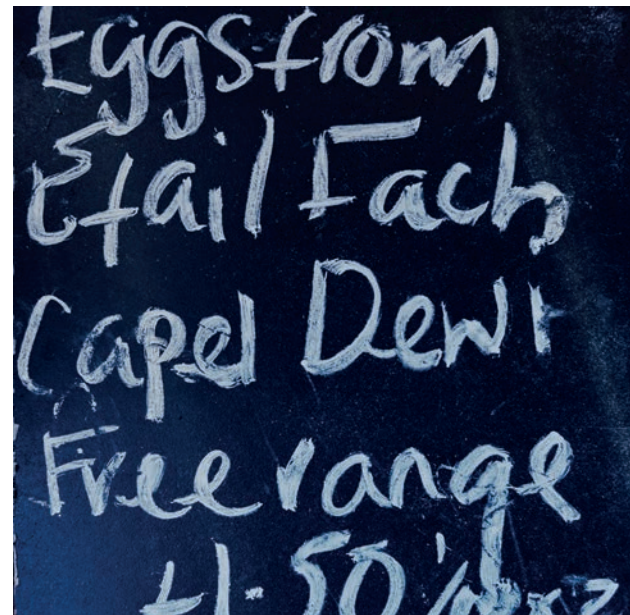 Eggs from
Efail Fach
Capel Dewi
Free range
£1.50